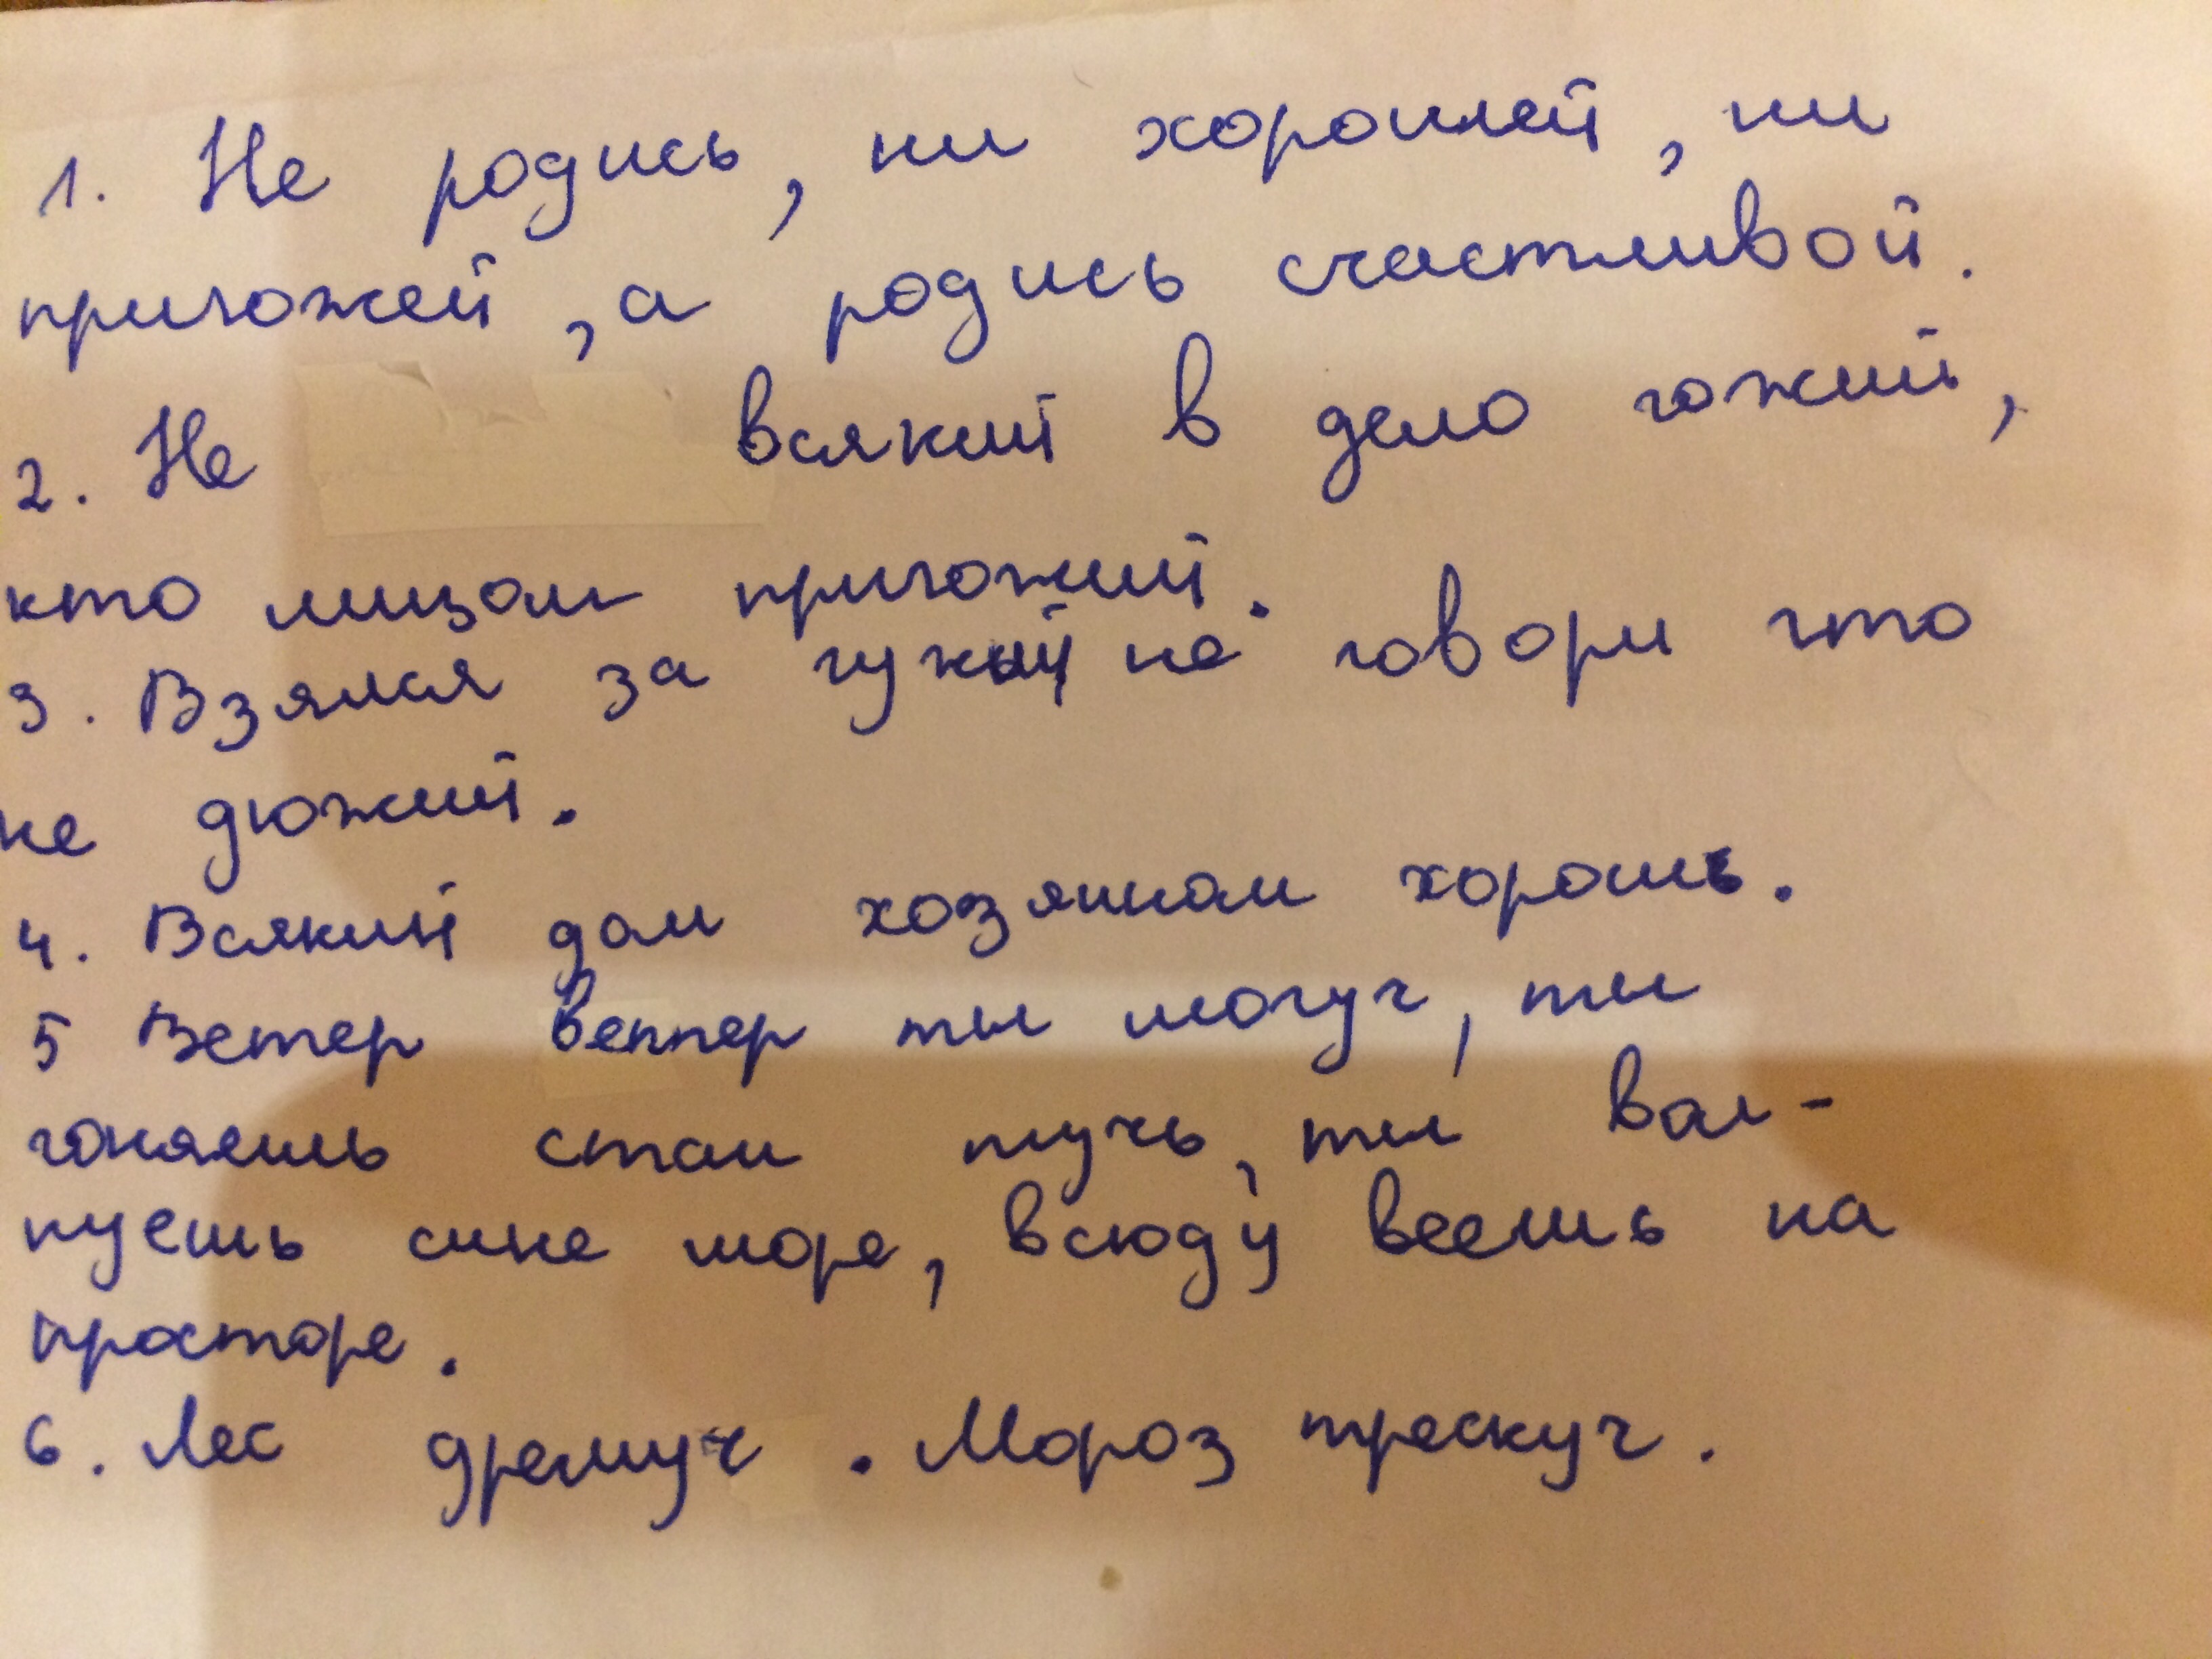 1. Не родись, ни хорошей, ни
пригожей, а родись счастливой.
2. Не всякий в дело гожий,
кто лицом пригожий.
3. Взялся за гужый не говори что
не дюжий.
4. Всякий дом хозяином хорошь.
5 Ветер ветер ты могуч, ты
гоняешь стаи тучь, ты вол-
нуешь сине море, всюду веешь на
просторе.
6. Лес дремуч. Мороз трескуч.